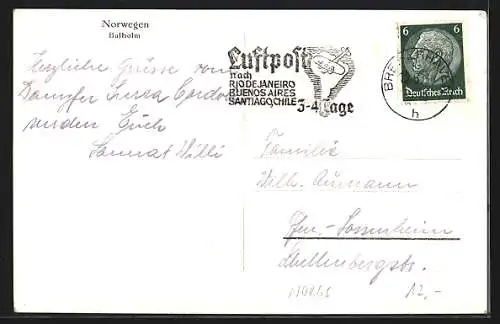 Norwegen
Balholm
Herzliche Grüsse vom
Dampfer Sierra Cordoba
senden Euch
Willi
Luftpost
nach
RIO DE JANEIRO
BUENOS AIRES
SANTIAGO CHILE
3-4 Tage
6 6
Deutsches Reich
BRE
h
Familie
Wilh. Aumann
Ffm.-Sossenheim
Schellenbergstr.
12,-